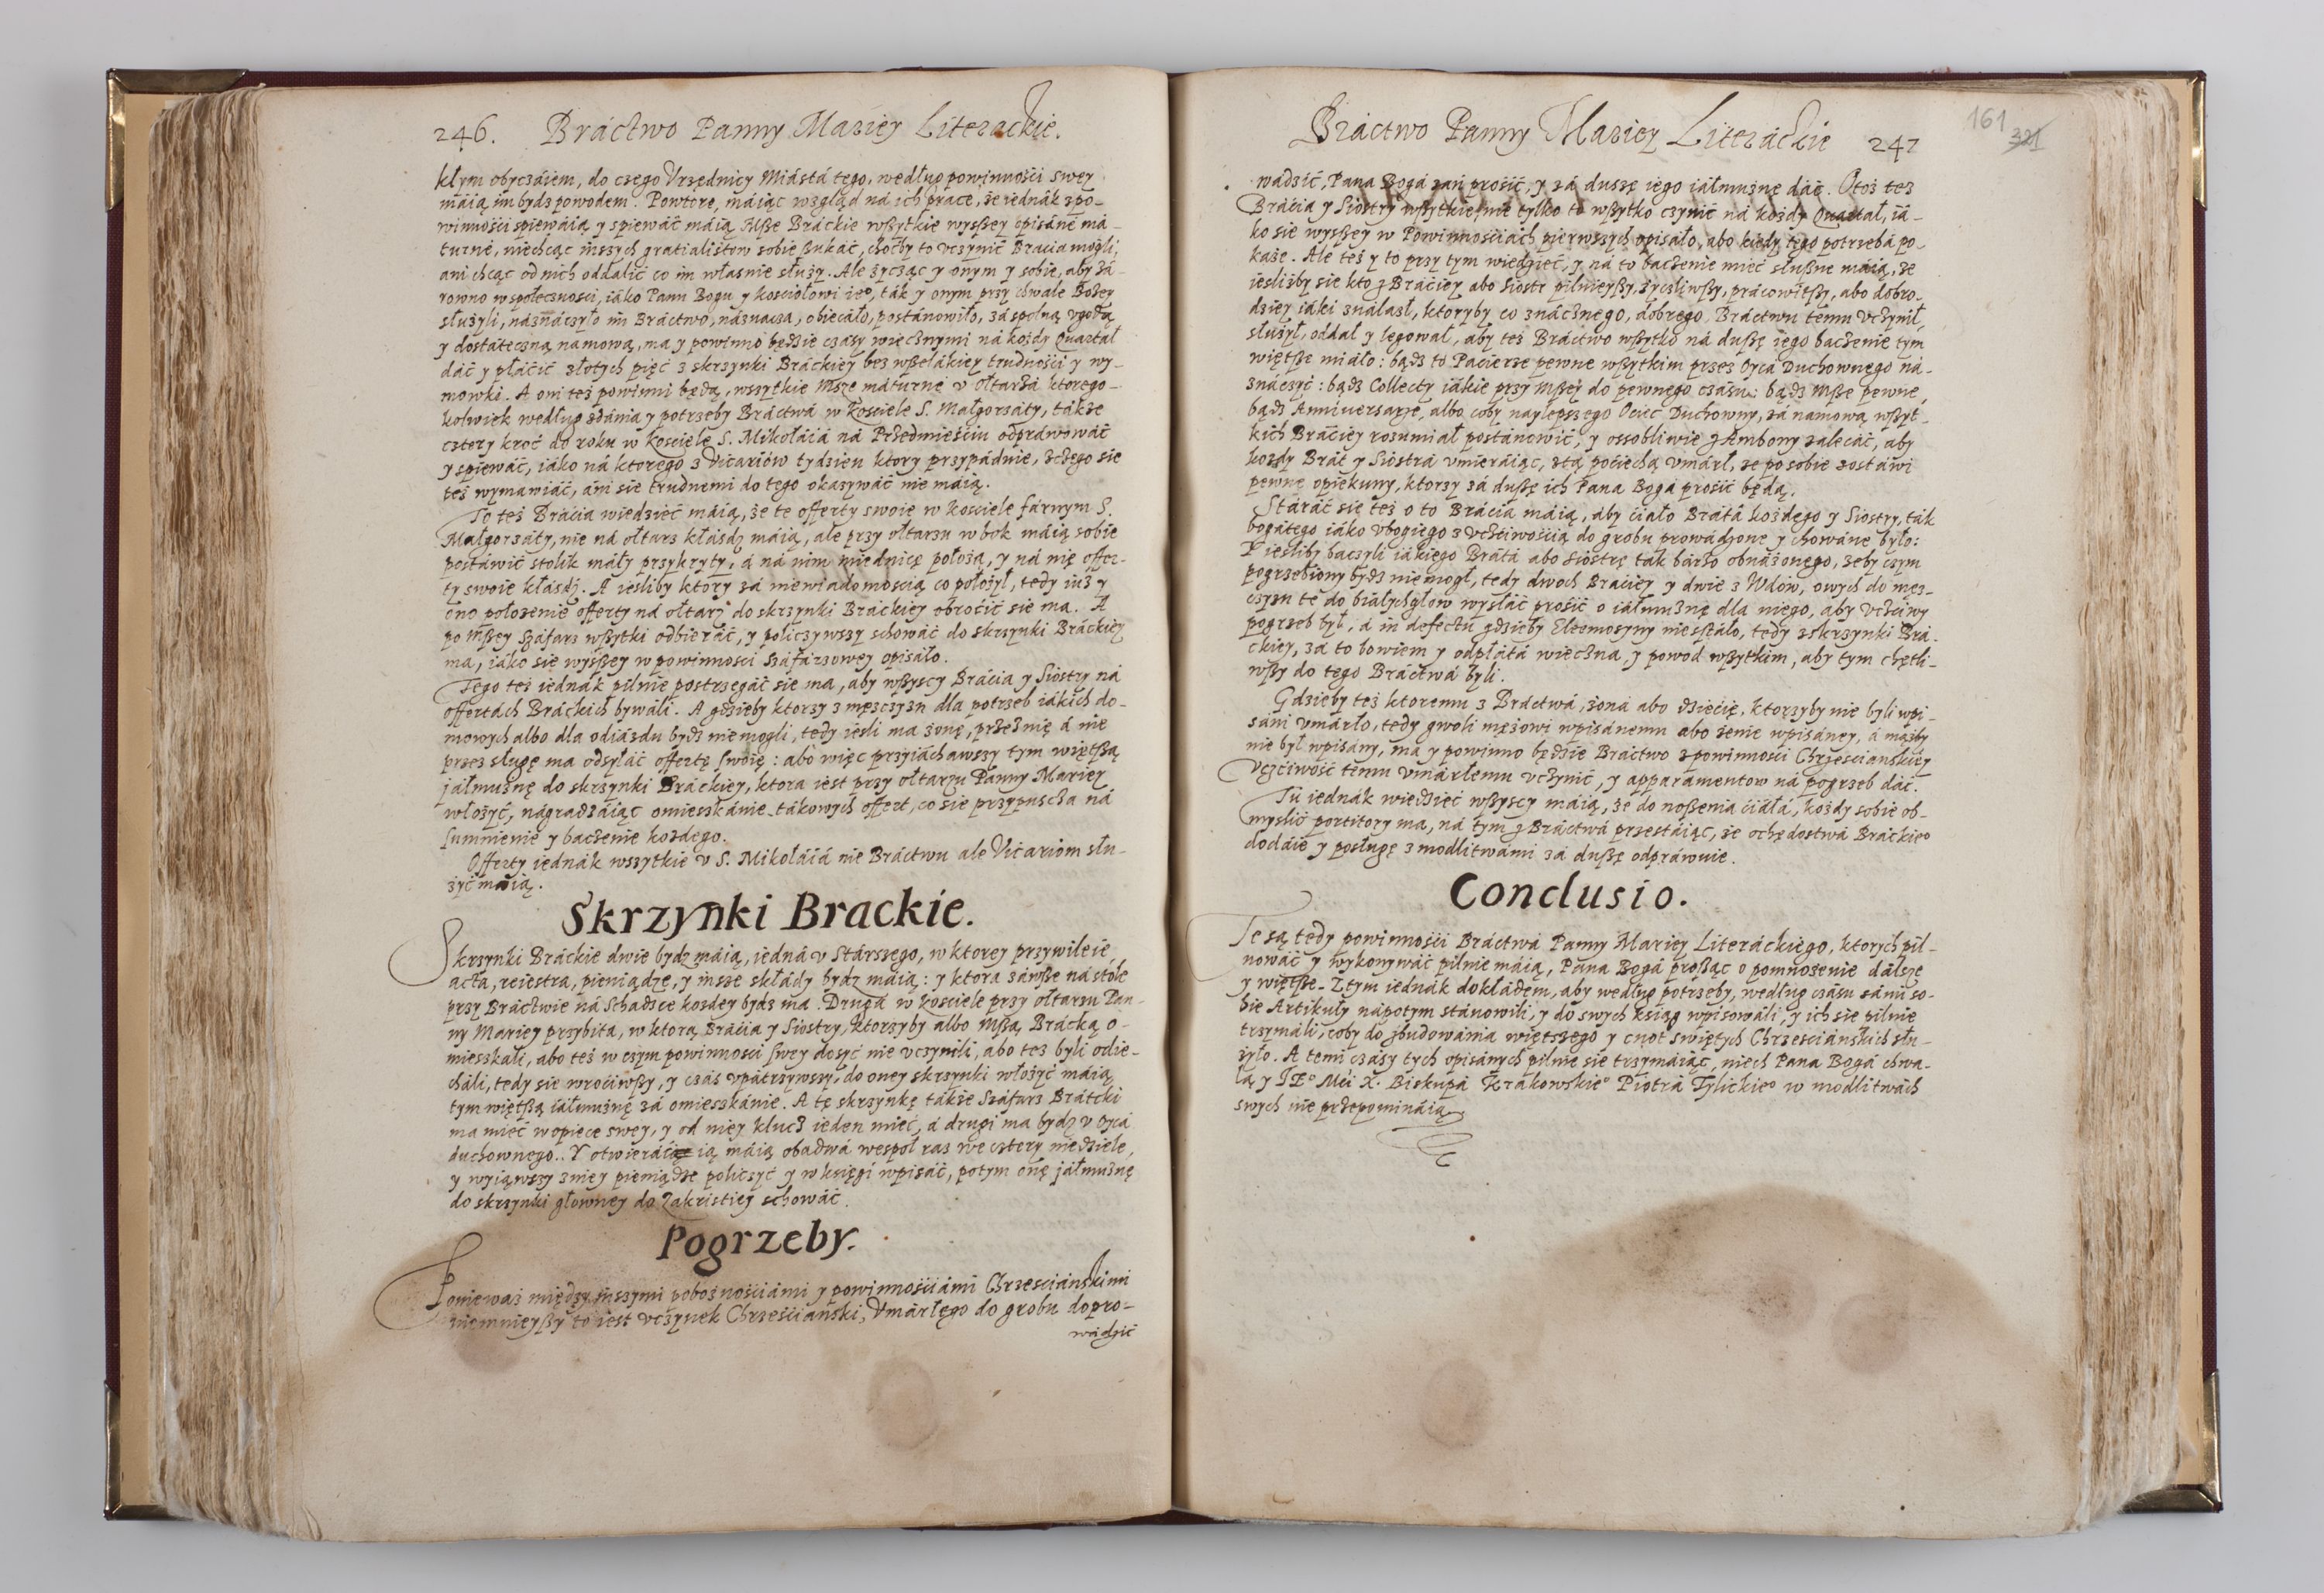 246. Bráctwo Panny Mariey Literackie.
kłym obyczáiem, do czego Vrzędnicy Miástá tego, według powinnośći swey
máią im bydz powodem. Powtore, máiąc wzgląd ná ich prace, że iednák z po-
winnośći spiewáią y spiewáć máią Mße Bráckie wßytkie wysßey opisáne má-
turne, niechcąc inszych gratialistow sobie ßukáć, choćby to vczynić Bracia mogli,
ani chcąc od nich oddalić co im własnie służy. Ale życząc y onym y sobie, aby zá-
rowno w społecznosci, iáko Panu Bogu y kosciołowi ieº, ták y onym przy chwale Bożey
służyli, náznáczyło im Bráctwo, náznacza, obiecáło, postánowiło, zá spolną vgodą
y dostáteczną námową, ma y powinno będzie czásy wiecznymi ná kożdy Quartał
dáć y płáćić złotych pięć z skrzynki Bráckiey bez wßelákiey trudnośći y wy-
mowki. A oni też powinni będą, wszytkie Msze máturne v ołtarzá ktorego-
kolwiek według zdánia y potrzeby Bráctwá w kościele S. Małgorzáty, tákze
cztery kroć do roku w kościele S. Mikołáiá ná Przedmieśćiu odpráwowáć
y spiewáć, iáko ná ktorego z Vicariów tydzien ktory przypádnie, z czego sie
też wymawiáć, áni sie trudnemi do tego okazywáć nie máią.
To też Brácia wiedzieć máią, że te offerty swoie w kosciele fárnym S.
Małgorzáty, nie ná ołtarz kłásdz máią, ale przy ołtarzu w bok máią sobie
postáwić stolik máły przykryty, á ná nim miednicę położą, y ná nię offer-
ty swoie kłásdz. A iesliby ktory zá niewiadomoscią co położył, tedy iuż y
ono położenie offerty ná ołtarz do skrzynki Bráckiey obroćić sie ma. A
po mßey Száfarz wßytki odbieráć, y policzywszy schowáć do skrzynki Bráckiey
ma, iáko się wyßßey w powinnosci Száfárzowey opisáło.
Tego też iednák pilnie postrzegáć sie ma, aby wßyscy Brácia y Siostry ná
offertách Bráckich bywáli. A gdzieby ktorzy z męzczyzn dla potrzeb iákich do-
mowych albo dla odiázdu bydź niemogli, tedy iesli ma żonę, przez nię á nie
przez sługę ma odsyłáć offertę swoię: abo więc przyiáchawszy tym więtßą
jáłmużnę do skrzynki Bráckiey, ktora iest przy ołtarzu Panny Mariey
włożyć, nágradzáiąc omieszkánie tákowych offert, co sie przypuscza ná
sumnienie y baczenie kożdego.
Offerty iednák wszytkie v S. Mikołáiá nie Bráctwu ale Vicariom słu-
żyć máią.
Skrzynki Brackie.
Skrzynki Bráckie dwie bydz máią, iedná v Stárszego, w ktorey przywileie,
acta, reiestra, pieniądze, y insze skłády bydz máią: y ktora záwße ná stole
przy Bráctwie ná Schadzce kozdey bydz ma. Druga w kosciele przy ołtarzu Pan-
ny Mariey przybita, w ktorą Brácia y Siostry, ktorzyby albo Mßą Brácką o-
mieszkali, abo też w czym powinnosci swey dosyć nie vczynili, abo też byli odie-
cháli, tedy sie wroćiwßy, y czás vpátrzywszy, do oney skrzynki włożyć máią
tym więtßą iáłmużnę zá omieszkánie. A tę skrzynkę tákże Száfarz Brátcki
ma mieć w opiece swey, y od niey klucz ieden mieć, á drugi ma bydz v Oycá
duchownego. Y otwieráć ią máią obadwá wespoł raz we cztery niedziele,
y wyiąwszy z niey pieniądze policzyć y w księgi wpisáć, potym onę jáłmużnę
do skrzynki głowney do Zakristiey schowáć.
Pogrzeby.
Poniewaz między inszymi pobożnośćiámi y powinnośćiámi Chrzesciánskimi
niemnieyßy to iest vczynek Chrześćiáński, Vmárłego do grobu dopro-
wádzić
Bráctwo Panny Mariey Literáckie 247
161
321
wadzić, Pana Bogá zań prośić, y zá duszę iego iáłmużnę dáć. Otoż też
Brácia y Siostry wßytkie nie tylko to wßytko czynić ná kożdy Quartał, iá-
ko sie wyßßey w Powinnośćiách pierwszych opisáło, abo kiedy tego potrzebá po-
każe. Ale też y to przy tym wiedzieć, y ná to baczenie mieć słußne máią, że
iesliżby sie kto z Bráciey abo Siostr pilnieyßy, życzliwßy, prácowitßy, abo dobro-
dziey iáki ználazł, ktoryby co znácznego, dobrego Bráctwu temu vczynił,
służył, oddał y legował, aby też Bráctwo wßytko ná dußę iego baczenie tym
więtße miáło: bądz to Pacierze pewne wßytkim przez Oycá Duchownego ná-
znáczyć: bądz Collecty iákie przy Mßey do pewnego czásu: bądz Mße pewne,
bądz Anniuersarze, albo coby naylepszego Ociec Duchowny, zá namową wßyt-
kich Bráciey rozumiał postánowić, y ossobliwie z Ambony zálecáć, aby
kozdy Brát y Siostrá vmieráiąc, z tą poćiechą vmárł, że po sobie zostáwi
pewne opiekuny, ktorzy zá dußę ich Pana Bogá prośić będą.
Stáráć się też o to Brácia máią, aby ćiáło Brátá kożdego y Siostry, ták
bogátego iáko vbogiego z vczciwośćią do grobu prowádzone y chowáne było:
Y iesliby baczyli iákiego Brátá abo Siostrę ták bárzo obnáżonego, żeby czym
pogrzebiony bydz niemogł, tedy dwoch Bráciey y dwie z Wdów, owych do męz-
czyzn te do białychgłow wysłáć prosić o iáłmużnę dla niego, aby vczćiwy
pogrzeb był, á in defectu gdzieby Eleemosyny niesstáło, tedy z skrzynki Brá-
ckiey, zá to bowiem y odpłátá wieczna, y powod wßytkim, aby tym chętli-
wßy do tego Bráctwá byli.
Gdzieby też ktoremu z Bráctwá, żoná abo dziećię, ktorzyby nie byli wpi-
sáni vmárło, tedy gwoli mężowi wpisánemu abo żenie wpisáney, á mążby
nie był wpisány, má y powinno będzie Bráctwo z powinnosći Chrześcianskiey
Vczćiwość temu vmárłemu vczynić, y apparamentow ná pogrzeb dáć.
Tu iednák wiedzieć wßyscy máią, że do noßenia ćiáłá, kożdy sobie ob-
myslić portitory ma, ná tym z Bráctwá przestáiąc, że ochędostwá Bráckieº
dodáie y posługę z modlitwámi zá dußę odpráwuie.
Conclusio.
Te są tedy powinnośći Bráctwá Panny Mariey Literáckiego, ktorych pil-
nowáć y wykonywáć pilnie máią, Pána Bogá proßąc o pomnożenie dálsze
y więtße. Z tym iednák dokłádem, aby według potrzeby, według czásu sámi so-
bie Artikuły nápotym stánowili, y do swych ksiąg wpisowáli, y ich sie pilnie
trzymáli, coby do zbudowánia więtszego y cnot świętych Chrzesciáńskich słu-
żyło. A temi czásy tych opisánych pilnie sie trzymáiąc, niech Pana Bogá chwa-
lą y JEº Mći X. Biskupá Krákowskieº Piotrá Tylickieº w modlitwách
swych nie przepomináią